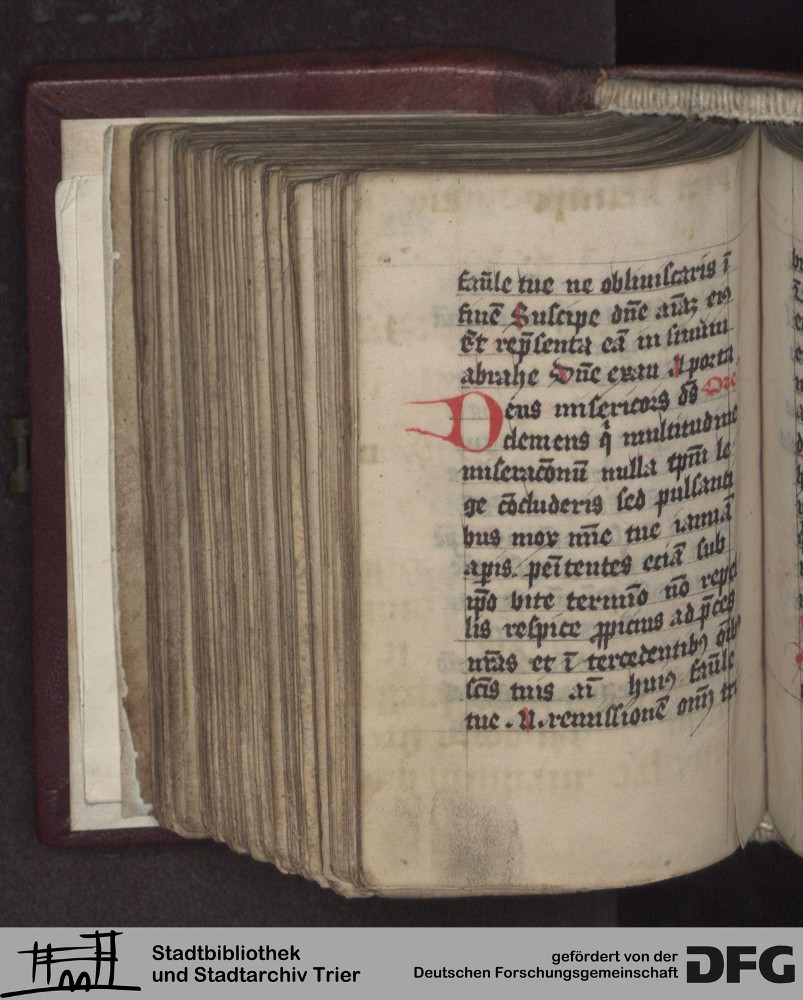 fam̄le tue ne obliuiscaris ī
finē Suscipe dn̄e aīaꝫ eiꝰ
Et rep̄senta eā in sinum
abrahe Dn̄e exau A porta
Deus misericors ds̄ Orͦ
clemens q̄ multitudine
miseracōnū nulla tp̄m le
ge cōcluderis sed pulsanti
bus mox mīe tue ianuā
apis. penītentes eciā sub
ip̄o vite termīo nō repel
lis respice ꝓpicius ad p̄ces
nr̄as et ī tercedentibꝫ oībꝫ
scīs tuis aī huiꝰ fam̄le
tue . N . remissionē om̄ī
br
Stadtbibliothek
und Stadtarchiv Trier
gefördert von der
Deutschen Forschungsgemeinschaft
DFG